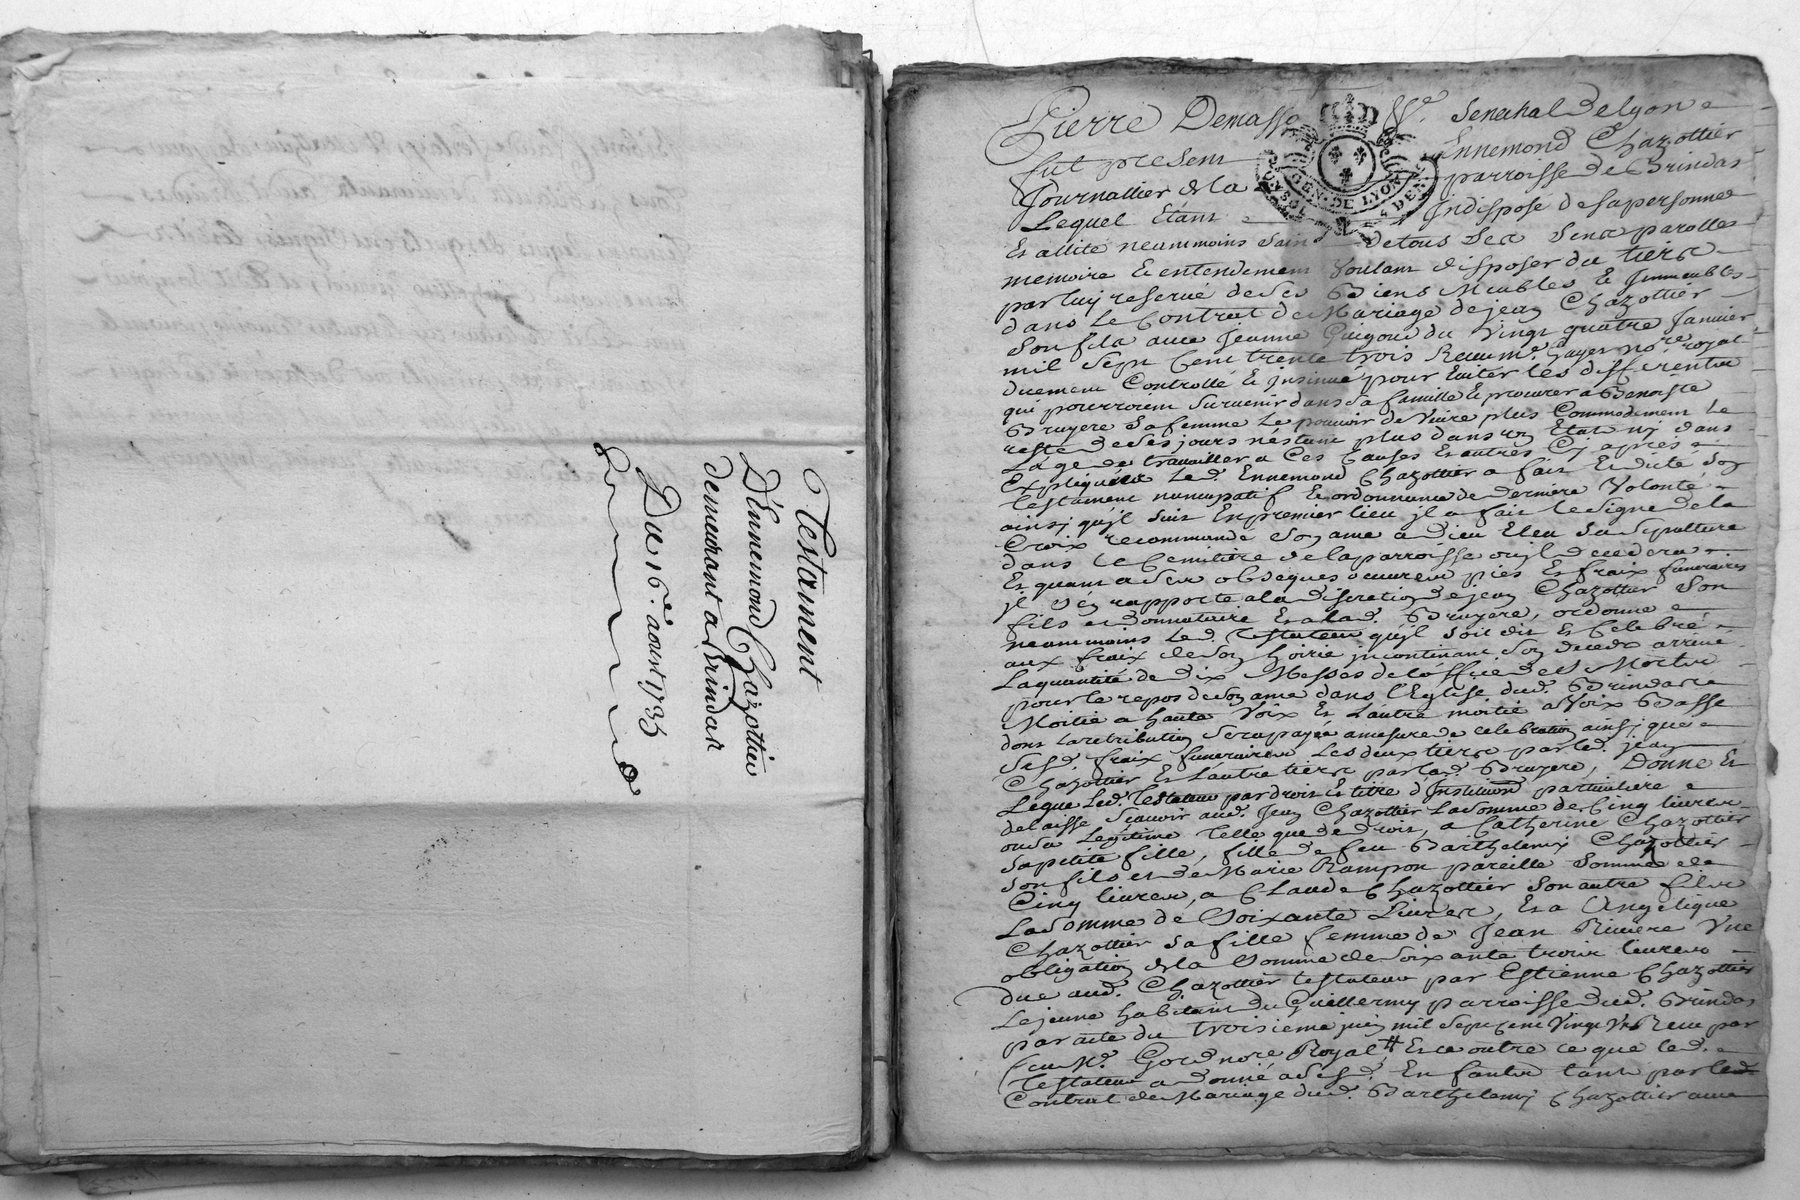 Testament
D'Ennemond Chazottier
demeurant a Brindas
Du 16e. aoust 1735
Pierre Demasso Senechal de Lyon
GEN. DE LYON
4 DEN.
fut present Ennemond Chazottier
Journallier de la parroisse de Brindas
Lequel Etant Indispose de sa personne
Et allité neammoins sain de tous ses sens parolles
memoire et entendement voulant disposer du tiers
par luy reservé de ses Biens Meubles et Immeubles
dans le Contrat de Mariage de jean Chazottier
son fils avec Jeanne Guigoud du vingt quatre Janvier
mil sept Cent trente trois Receu me. Gayet nore. royal
duement Controllé et Insinué pour Eviter les differents
qui pourroient survenir dans sa famille et procurer a Benoiste
Bruyere sa femme le pouvoir de vivre plus Commodement le
reste de ses jours n'estant plus dans un Etat ny dans
l'age de travailler a Ces Causes et autres Cy apres
Expliquées led. Ennemond Chazottier a fait et dicté son
testament nuncupatif et ordonnance de derniere volonté
ainsy qu'jl suit En premier lieu jl a fait le signe de la
Croix recommandé son ame a dieu Eleu sa sepulture
dans le Cemitiere de la parroisse ou jl decedera
Et quant a ses obseques oeuvres pies et fraix funeraires
jl s'en rapporte a la discretion de jean Chazottier son
fils et donnataire Et a lad. Bruyere, ordonne
neammoins led. testateur qu'jl soit dit et Celebré
aux fraix de son hoirie jncontinant son deceds arrivé
la quantité de dix Messes de l'office des Morts
pour le repos de son ame dans l'Eglise dud. Brindas
Moitié a haute voix Et l'autre moitié a voix Basse
dont la retribution sera payée a mesure de celebration ainsj que
sesd. fraix funeraires les deux tiers par led. jean
Chazottier Et l'autre tiers par lad. Bruyere, Donne Et
Legue Led. testateur par droit Et titre d'Institution particuliere
delaisse sçavoir aud. Jean Chazottier la somme de Cinq livres
ou sa Legitime telle que de droit, a Catherine Chazottier
sa petite fille, fille de feu Barthelemy Chazottier
son fils et de Marie Rampon pareille somme de
Cinq livres, a Claude Chazottier son autre fils
la somme de Soixante Livres, Et a Angelique
Chazottier sa fille femme de Jean Riviere Une
obligation de la somme de soixante trois livres
due aud. Chazottier testateur par Estienne Chazottier
le jeune habitant du Guillermy parroisse dud. Brindas
par acte du troisieme juin mil sept Cent Vingt Receu par
feu Me. Gord nore Royal Et ce outre ce que led.
testateur a donné a sesd. Enfants tant par led
Contrat de Mariage dud. Barthelemy Chazottier avec